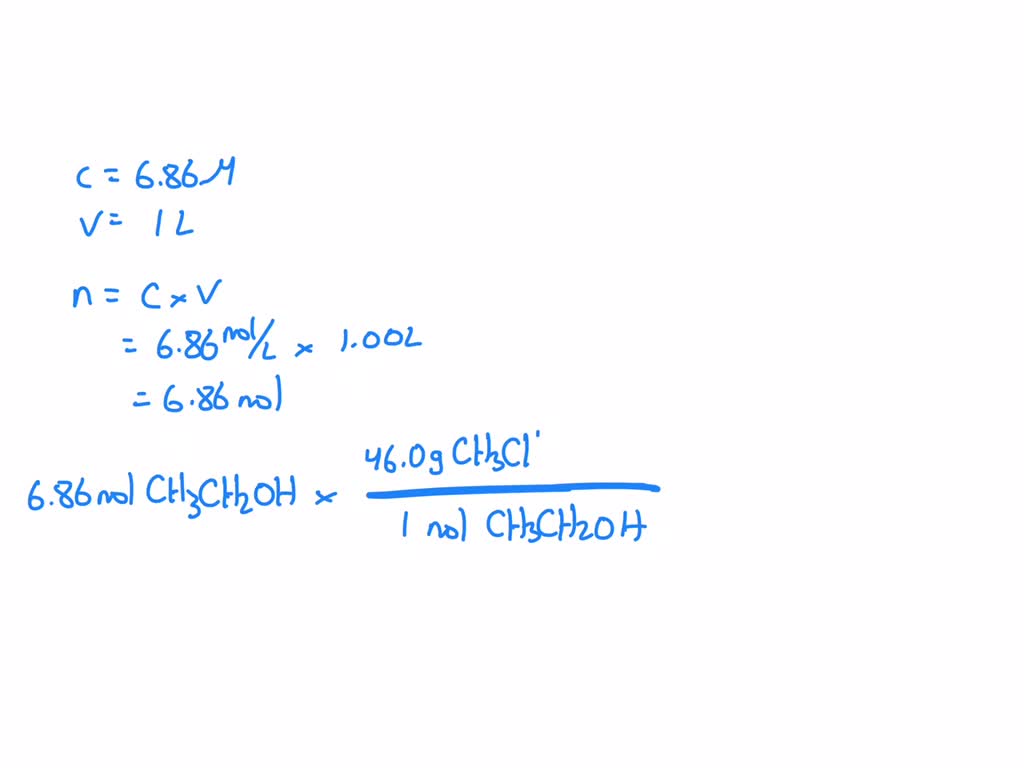 c = 6.86 M
V = 1 L
n = C × V
= 6.86 mol/L × 1.00L
= 6.86 mol
6.86 mol CH₃CH₂OH × 46.0g CH₃Cl
1 mol CH₃CH₂OH